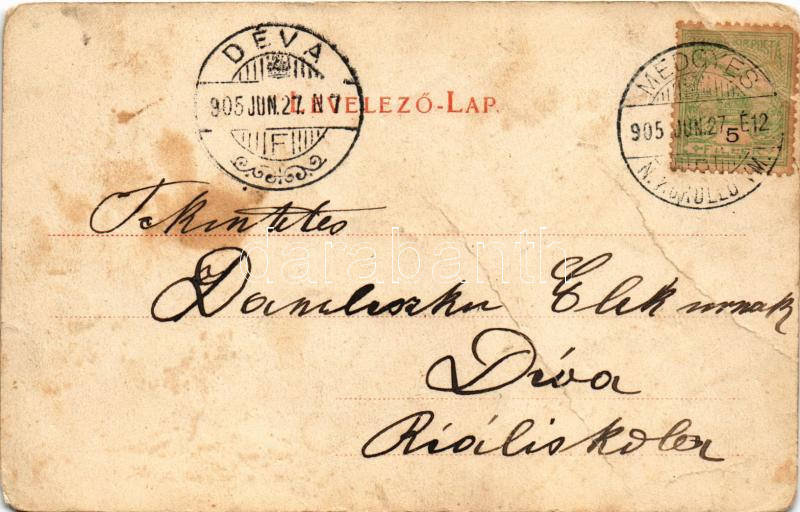 DÉVA
905 JUN. 27. N 7
F
LEVELEZŐ-LAP.
MEDGYES
905 JUN. 27. É12
5
Tekintetes
Daniliszku Elek urnak
Déva
Reáliskola
darabanth